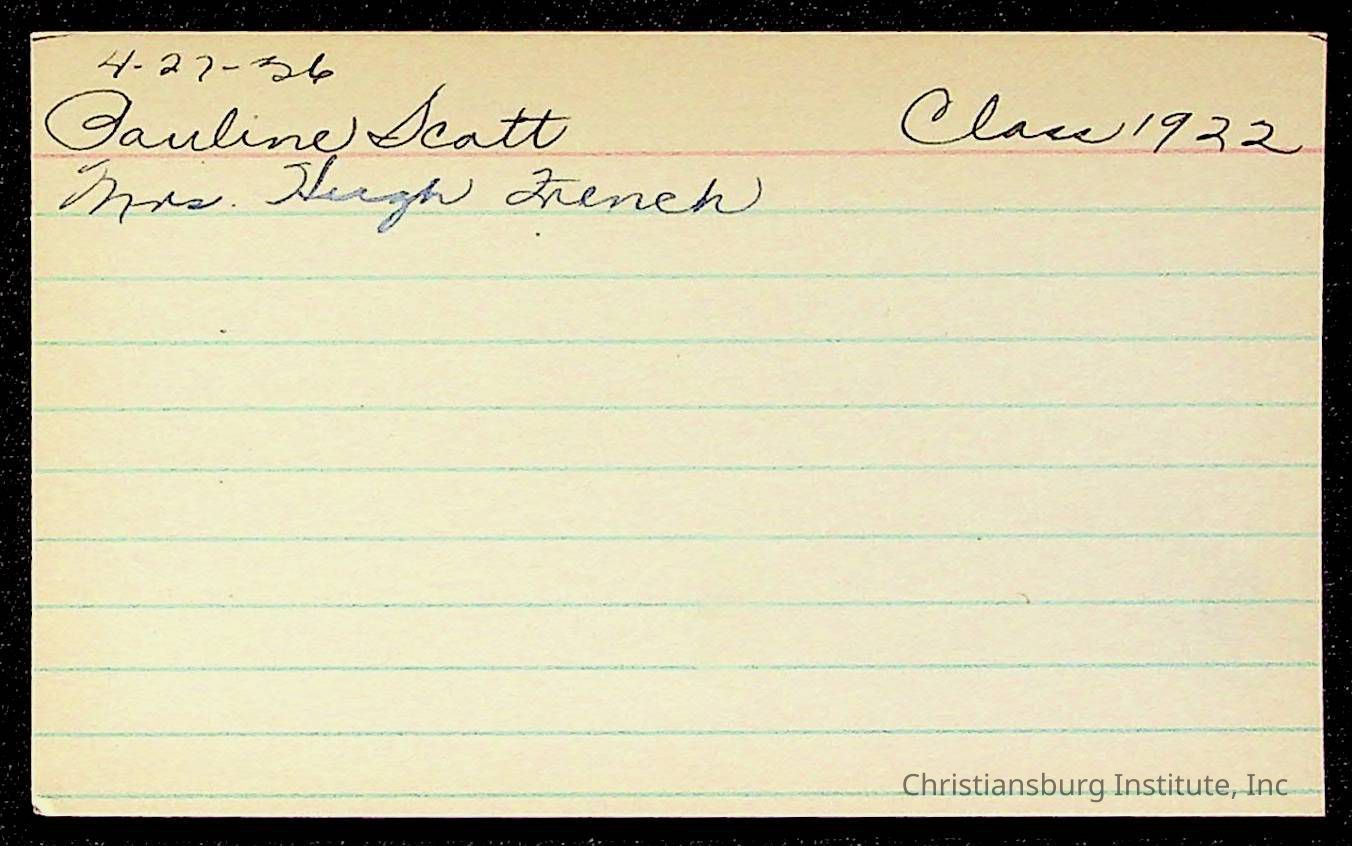 4-27-56
Pauline Scott Class 1922
Mrs. Hugh French
Christiansburg Institute, Inc